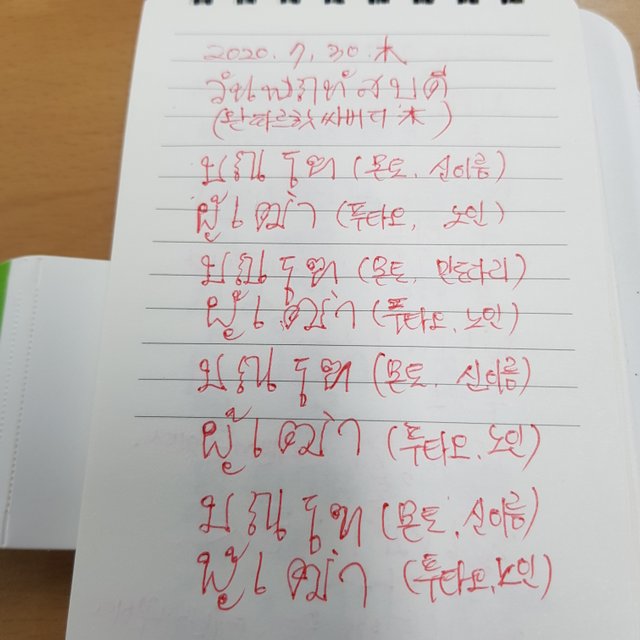 2020. 7. 30. 木
วันพฤหัสบดี
(완파르핫싸버디 木)
มณโฑ (몬토, 신이름)
ผู้เฒ่า (푸타오, 노인)
มณโฑ (몬토, 만토다리)
ผู้เฒ่า (푸타오, 노인)
มณโฑ (몬토, 신이름)
ผู้เฒ่า (푸타오, 노인)
มณโฑ (몬토, 신이름)
ผู้เฒ่า (푸타오, 노인)